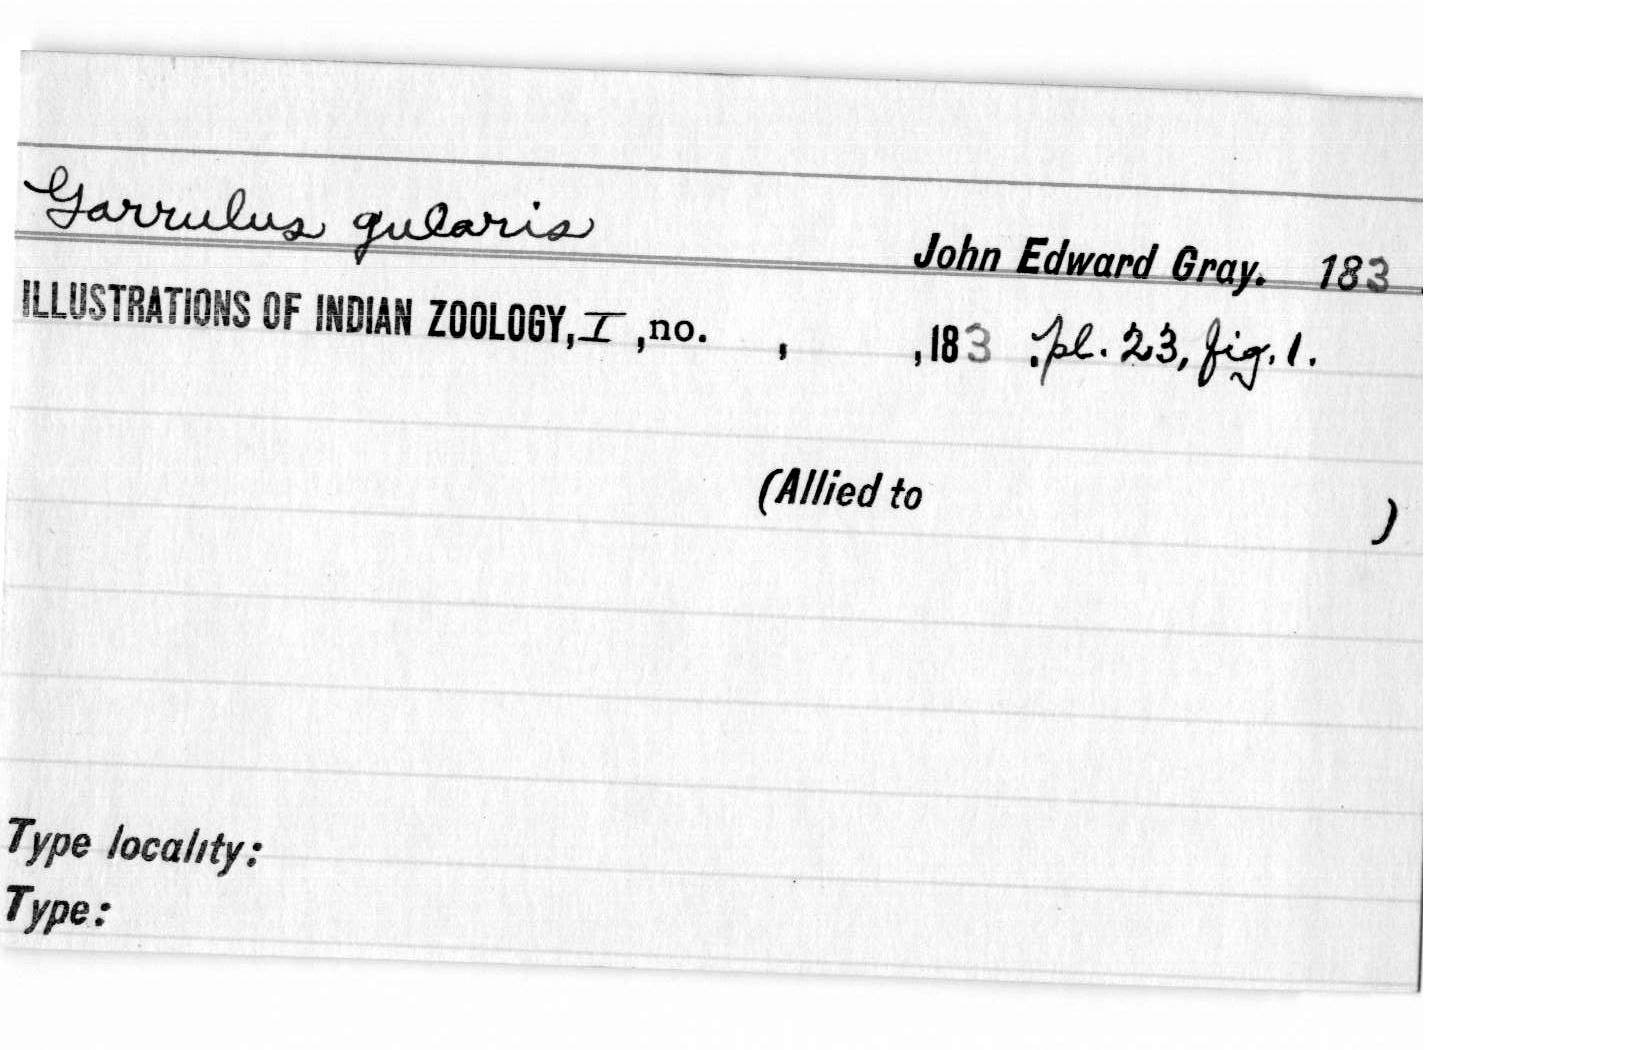 Garrulus gularis
John Edward Gray. 183
ILLUSTRATIONS OF INDIAN ZOOLOGY, I , no. , , 183 . pl. 23, fig. 1.
(Allied to )
Type locality:
Type: